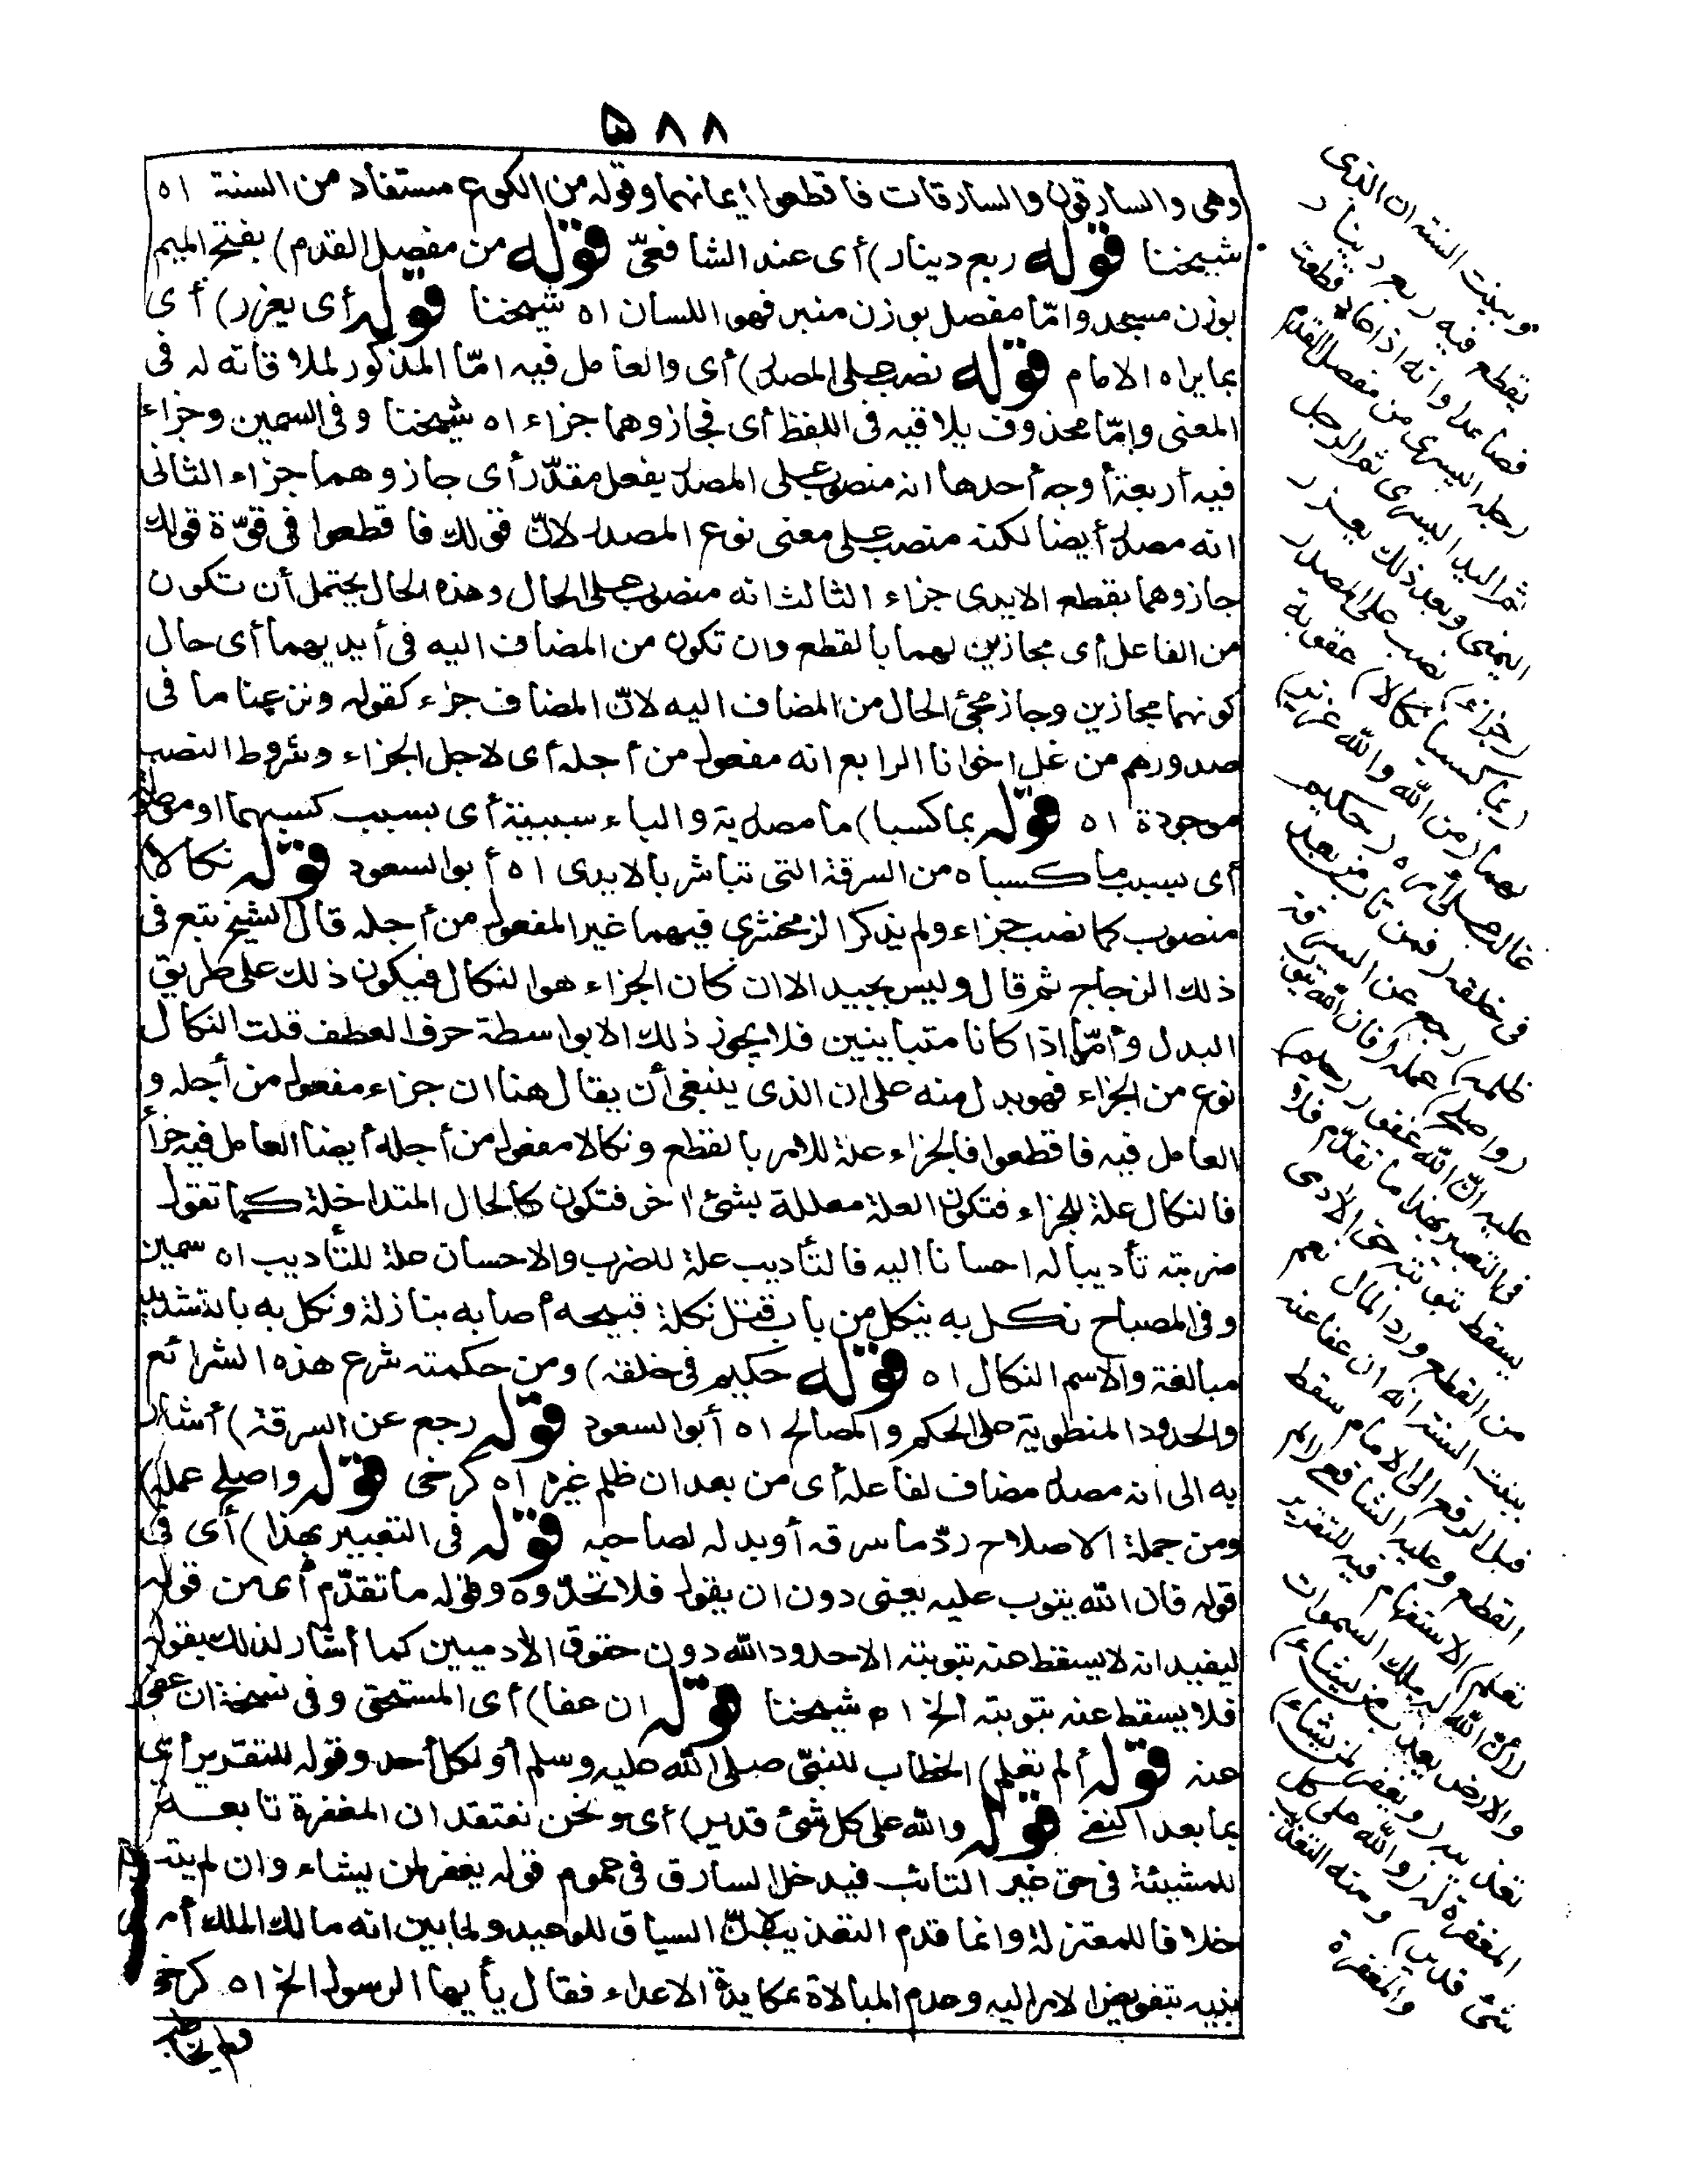 ٥٨٨
وهى والسارقون والسارقات فاقطعوا أيمانهما وقوله من الكوع مستفاد من السنة اه
شيخنا قوله ربع دينار) أى عند الشافعىّ قوله من مفصل القدم) بفتح الميم
بوزن مسجد وامّا مفصل بوزن منبر فهو اللسان اه شيخنا قوله أى يعزر) أى
بما يراه الامام قوله نصب على المصدر) أى والعامل فيه امّا المذكور لملاقاته له فى
المعنى وامّا محذوف يلاقيه فى اللفظ أى فجازوهما جزاء اه شيخنا وفى السمين وجزاء
فيه أربعة أوجه أحدها انه منصوب على المصدر بفعل مقدّر أى جازوهما جزاء الثانى
انه مصدر أيضا لكنه منصب على معنى نوع المصدر لانّ قولك فاقطعوا فى قوّة قولك
جازوهما بقطع الايدى جزاء الثالث انه منصوب على الحال وهذه الحال يحتمل أن تكون
من الفاعل أى مجازين لهما بالقطع وان تكون من المضاف اليه فى أيديهما أى حال
كونهما مجازين وجاز مجئ الحال من المضاف اليه لانّ المضاف جزء كقوله ونزعنا ما فى
صدورهم من غل اخوانا الرابع انه مفعول من أجله أى لاجل الجزاء وشروط النصب
موجودة اه قوله بما كسبا) ما مصدرية والباء سببية أى بسبب كسبهما او موصولة
أى بسبب ما كسباه من السرقة التى تباشر بالايدى اه أبو السعود قوله نكالا)
منصوب كما نصب جزاء ولم يذكر الزمخشرى فيهما غير المفعول من أجله قال الشيخ تبع فى
ذلك الزجاج ثم قال وليس بجيد الا ان كان الجزاء هو النكال فيكون ذلك على طريق
البدل وأمّا اذا كانا متباينين فلا يجوز ذلك الا بواسطة حرف العطف قلت النكال
نوع من الجزاء فهو بدل منه على ان الذى ينبغى أن يقال هنا ان جزاء مفعول من أجله و
العامل فيه فاقطعوا فالجزاء علة للامر بالقطع ونكالا مفعول من أجله أيضا العامل فيه جزأ
فالنكال علة للجزاء فتكون العلة معللة بشئ اخر فتكون كالحال المتداخلة كما تقول
ضربته تأديبا له احسانا اليه فالتأديب علة للضرب والاحسان علة للتأديب اه سمين
وفى المصباح نكل به ينكل من باب قتل نكلة قبيحه أصابه بنازلة ونكل به بالتشديد
مبالغة والاسم النكال اه قوله حكيم فى خلقه) ومن حكمته شرع هذه الشرائع
والحدود المنطوية على الحكم والمصالح اه أبو السعود قوله رجع عن السرقة) أشار
به الى انه مصدر مضاف لفاعله أى من بعد ان ظلم غيره اه كرخى قوله واصلح عمله)
ومن جملة الاصلاح ردّ ما سرقه أو بدله لصاحبه قوله فى التعبير بهذا) أى فى
قوله فان الله يتوب عليه يعنى دون ان يقول فلا تحدّوه وقوله ما تقدّم أى من قوله
ليفيد انه لا يسقط عنه بتوبته الا حدود الله دون حقوق الادميين كما أشار لذلك بقوله
فلا يسقط عنه بتوبته الخ اه شيخنا قوله ان عفا) أى المستحق وفى نسخة ان عفى
عنه قوله ألم تعلم) الخطاب للنبىّ صلى الله عليه وسلم أو لكل أحد وقوله للتقرير أى
بما بعد النفى قوله والله على كل شئ قدير) أى ونحن نعتقد ان المغفرة تابعة
للمشيئة فى حق غير التائب فيدخل السارق فى عموم قوله يغفر لمن يشاء وان لم يتب
خلافا للمعتزلة وانما قدم التعذيب لانّ السياق للوعيد ولما بين انه مالك الملك أمر
نبيه بتفويض الامر اليه وعدم المبالاة بمكايدة الاعداء فقال يأيها الرسول الخ اه كرخى
وبينت السنة ان الذى
يقطع فيه ربع دينار
فصاعدا وانه اذا عاد قطعت
رجله اليسرى من مفصل القدم
ثم اليد اليسرى ثم الرجل
اليمنى وبعد ذلك يعزر
(جزاء) نصب على المصدر
(بما كسبا نكالا) عقوبة
لهما (من الله والله عزيز)
غالب على أمره (حكيم)
فى خلقه (فمن تاب من بعد
ظلمه) رجع عن السرقة
(واصلح) عمله (فان الله يتوب
عليه انّ الله غفور رحيم)
فى التعبير بهذا ما تقدّم فلا
يسقط بتوبته حق الادمى
من القطع ورد المال نعم
بينت السنة انه ان عفا عنه
قبل الرفع الى الامام سقط
القطع وعليه الشافعى (ألم
تعلم) الاستفهام فيه للتقرير
(أنّ الله له ملك السموات
والارض يعذب من يشاء)
تعذيبه (ويغفر لمن يشاء)
المغفرة له (والله على كل
شئ قدير) ومنه التعذيب
والمغفرة